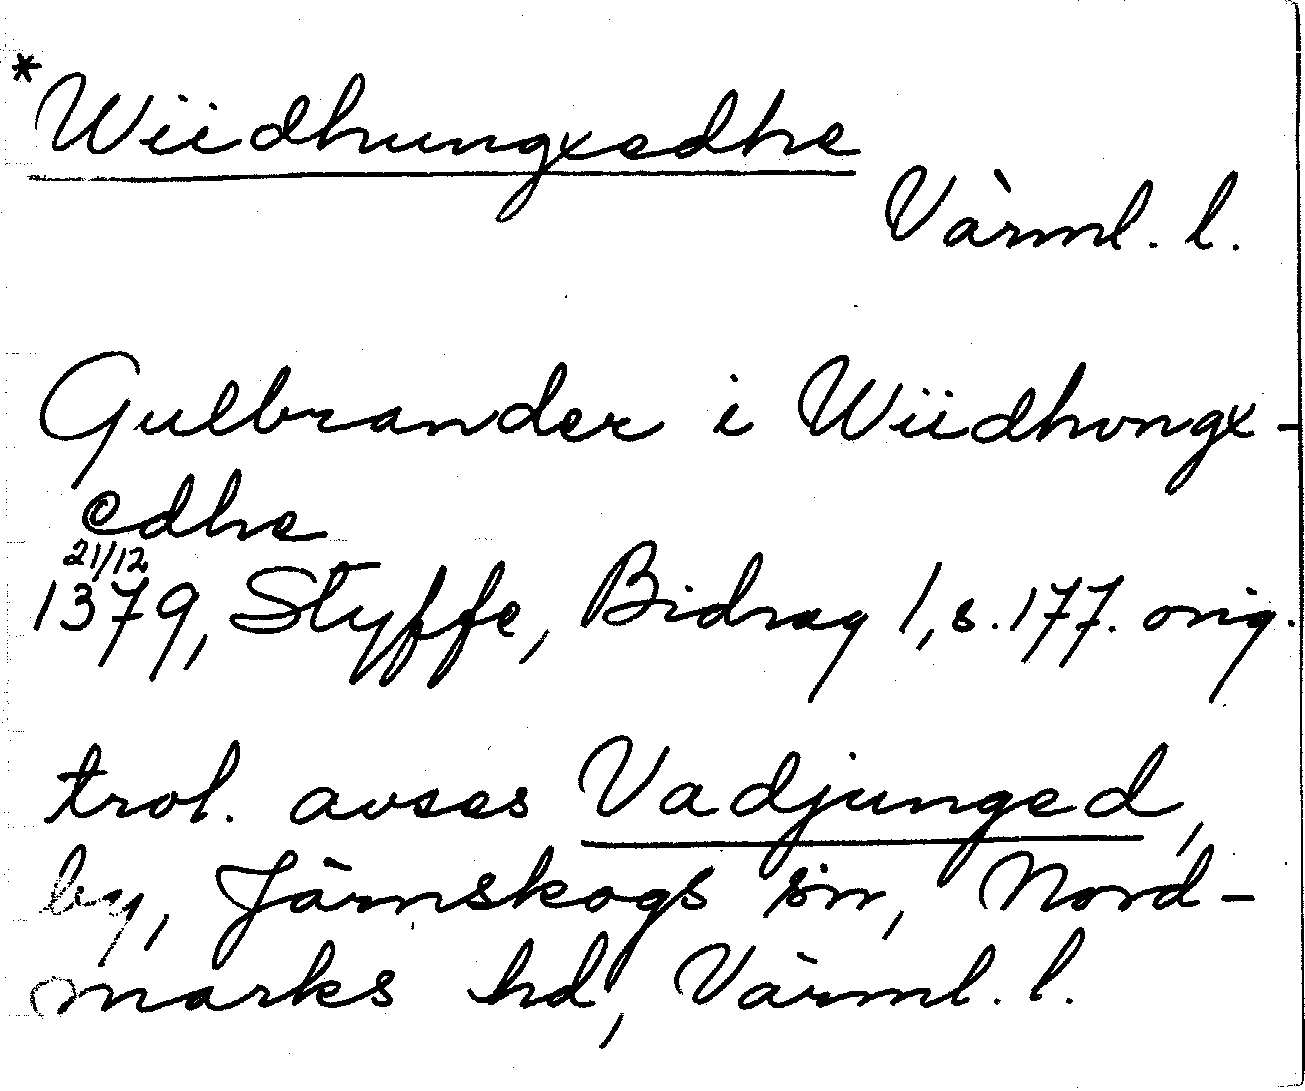 *Wiidhungxedhe
Värml. l.
Gulbrander i Wiidhongx-
edhe
21/12
1379, Styffe, Bidrag 1, s. 177. orig.
trol. avses Vadjunged,
by, Järnskogs sn, Nord-
marks hd, Värml. l.